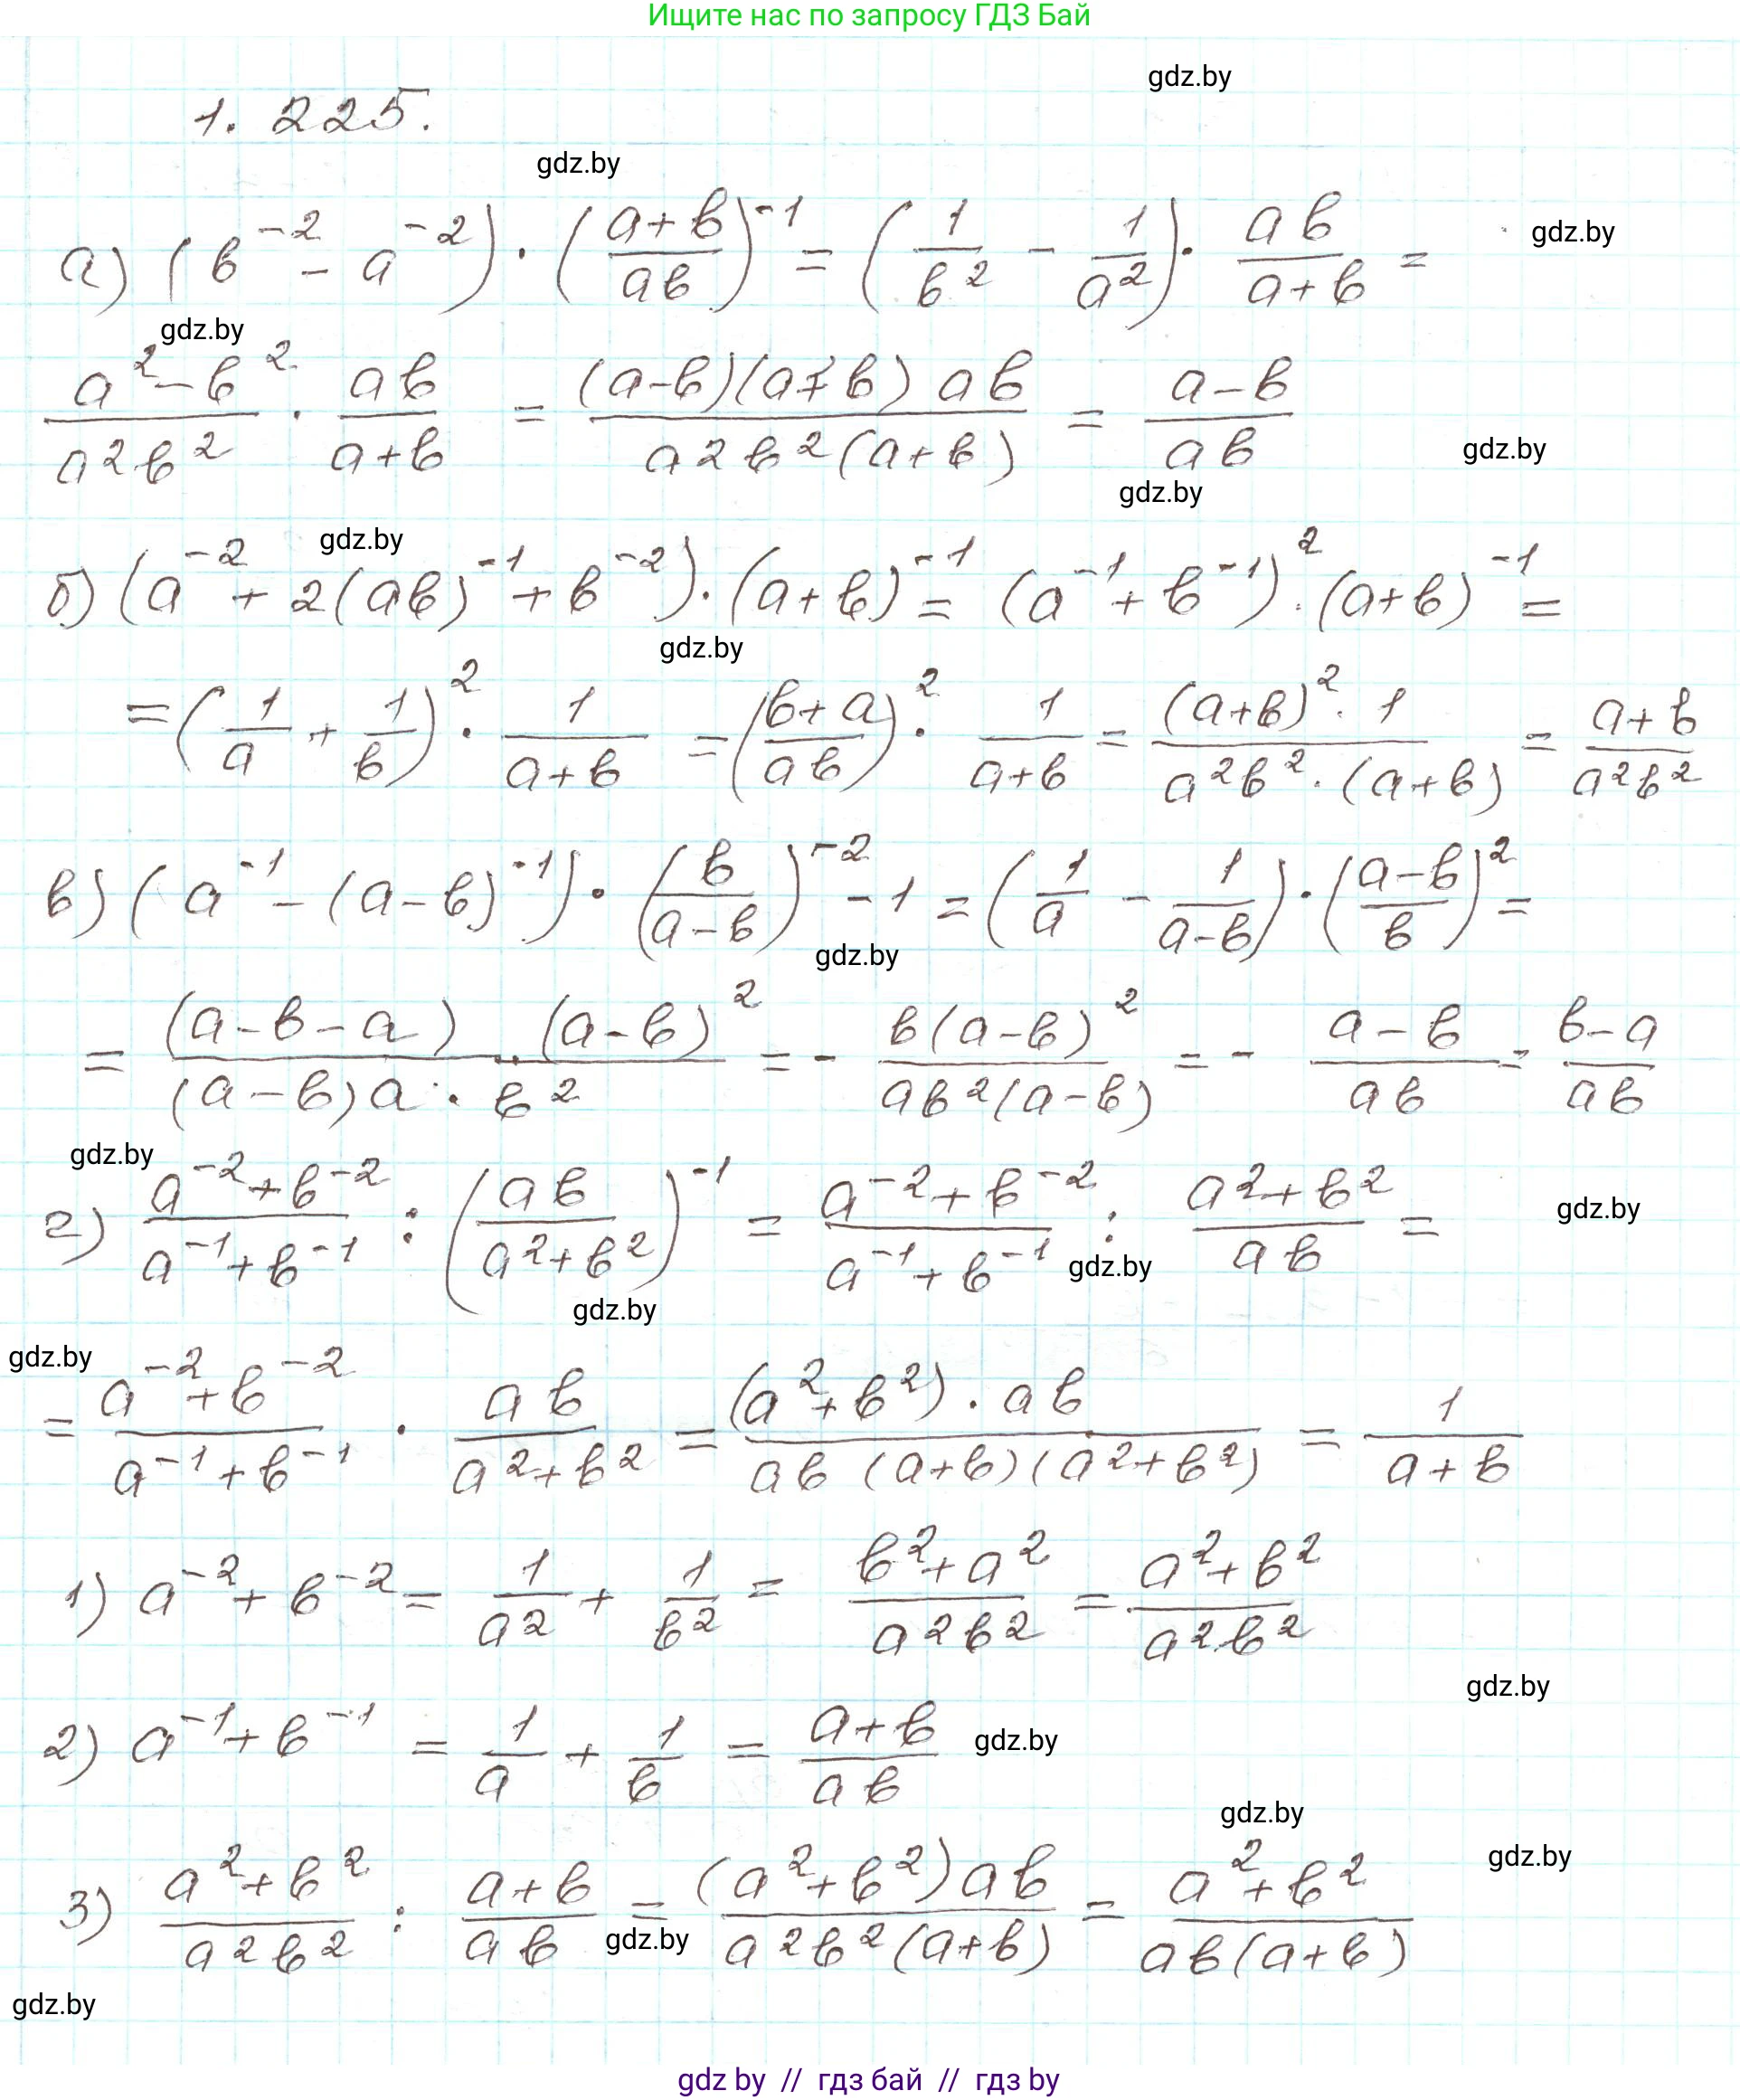 Ищите нас по запросу ГДЗ Бай
gdz.by
1. 225.
gdz.by
а) (b^-2 - a^-2) · ((a+b)/(ab))^-1 = (1/b^2 - 1/a^2) · ab/(a+b) =
gdz.by
gdz.by
(a^2-b^2)/(a^2b^2) · ab/(a+b) = ((a-b)(a+b) ab)/(a^2b^2(a+b)) = (a-b)/(ab)
gdz.by
gdz.by
gdz.by
б) (a^-2 + 2(ab)^-1 + b^-2) · (a+b)^-1 = (a^-1 + b^-1)^2 · (a+b)^-1 =
gdz.by
= (1/a + 1/b)^2 · 1/(a+b) = ((b+a)/(ab))^2 · 1/(a+b) = ((a+b)^2 · 1)/(a^2b^2 · (a+b)) = (a+b)/(a^2b^2)
в) (a^-1 - (a-b)^-1) · (b/(a-b))^-2 - 1 = (1/a - 1/(a-b)) · ((a-b)/b)^2 =
gdz.by
= ((a-b-a) · (a-b)^2)/((a-b)a · b^2) = - (b(a-b)^2)/(ab^2(a-b)) = - (a-b)/(ab) = (b-a)/(ab)
gdz.by
г) (a^-2+b^-2)/(a^-1+b^-1) : ((ab)/(a^2+b^2))^-1 = (a^-2+b^-2)/(a^-1+b^-1) : (a^2+b^2)/(ab) =
gdz.by
gdz.by
gdz.by
gdz.by
= (a^-2+b^-2)/(a^-1+b^-1) · ab/(a^2+b^2) = ((a^2+b^2) · ab)/(ab (a+b)(a^2+b^2)) = 1/(a+b)
1) a^-2 + b^-2 = 1/a^2 + 1/b^2 = (b^2+a^2)/(a^2b^2) = (a^2+b^2)/(a^2b^2)
gdz.by
2) a^-1 + b^-1 = 1/a + 1/b = (a+b)/(ab)
gdz.by
gdz.by
gdz.by
3) (a^2+b^2)/(a^2b^2) : (a+b)/(ab) = ((a^2+b^2)ab)/(a^2b^2(a+b)) = (a^2+b^2)/(ab(a+b))
gdz.by
gdz.by
gdz by // гдз бай // гдз by